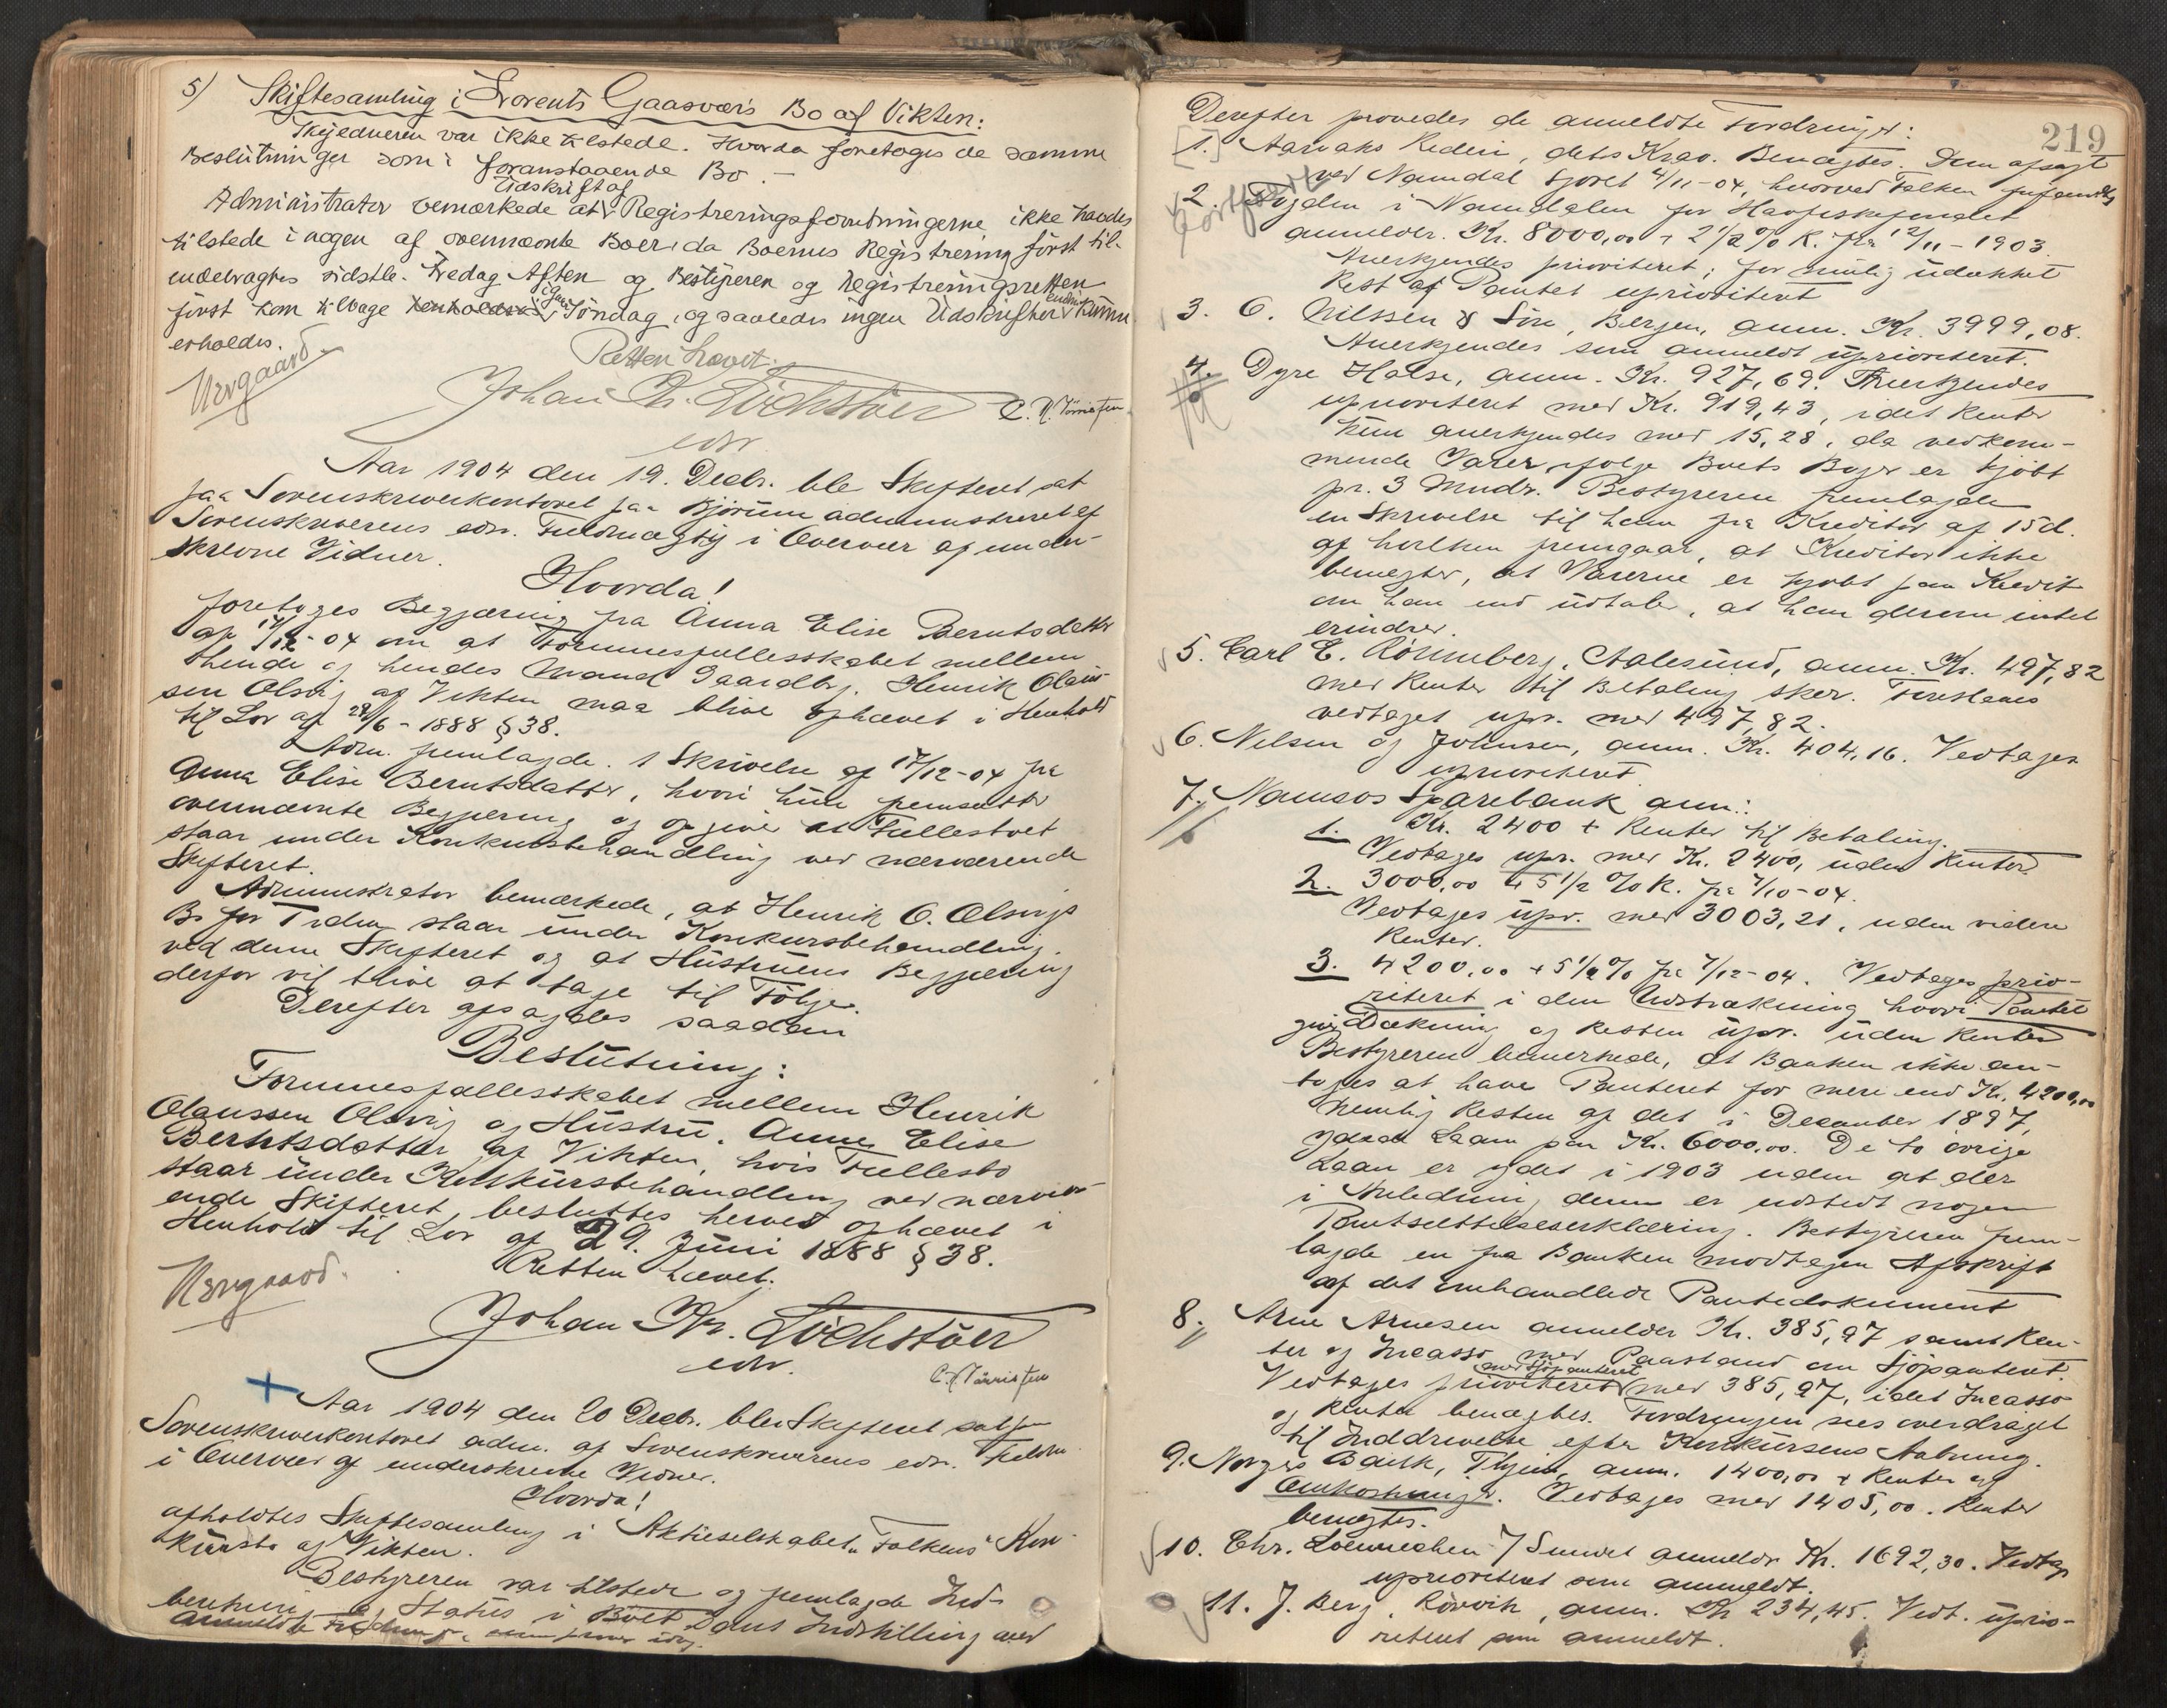 5) Skiftesamling i Lorents Gaasvær's Bo af Vikten:
Skyldneren var ikke tilstede. Hvorda foretoges de samme
Beslutninger som i foranstaaende Bo. –
Udskrift af
Administrator bemærkede at Registreringsforretningerne ikke havdes
tilstede i nogen af ovennævnte Boer, da Boernes Registrering först til-
endebragtes sidstl. Fredag Aften og Bestyreren og Registreringsretten
först kom tilbage igaar Söndag, og saaledes ingen Udskrifter endnu kunne
erholdes.
Retten hævet.
Nergaard.
Johan Kr. Löchstöer
edv.
Aar 1904 den 19. Decbr. blev Skifteret sat
paa Sorenskriverkontoret paa Björum administreret af
Sorenskriverens edv. Fuldmægtig i Overvær af under-
skrevne Vidner.
Hvorda!
foretoges Begjæring fra Anna Elise Berntsdatter
af 17/12-04 om at Formuesfællesskabet mellem
hende og hendes Mand Gaardbr. Henrik Olaus-
sen Olsvig af Vikten maa blive ophævet i Henhold
til Lov af 29/6-1888 § 38.
Adm. fremlagde. 1 Skrivelse af 17/12-04 fra
Anna Elise Berntsdatter, hvori hun fremsætter
ovennævnte Begjæring og opgiver at Fællesboet
staar under Konkursbehandling ved nærværende
Skifteret.
Administrator bemærkede, at Henrik O. Olsvigs
Bo for Tiden staar under Konkursbehandling
ved denne Skifteret og at Hustruens Begjæring
derfor vil blive at tage til Fölge.
Derefter afsagdes saadan
Beslutning:
Formuesfællesskabet mellem Henrik
Olaussen Olsvig og Hustru, Anna Elise
Berntsdatter af Vikten, hvis Fællesbo
staar under Konkursbehandling ved nærvær-
ende Skifteret, besluttes herved ophævet i
Henhold til Lov af 29. Juni 1888 § 38.
Retten hævet.
Nergaard.
Johan Kr. Löchstöer
edv.
Aar 1904 den 20 Decbr. blev Skifteret sat paa
Sorenskriverkontoret adm. af Sorenskriverens edv. Fuldm.
i Overvær af underskrevne Vidner.
Hvorda!
afholdtes Skiftesamling i Aktieselskabet "Falkens" Kon-
kursbo af Vikten.
Bestyreren var tilstede og fremlagde Ind-
beretning og Status i Boet Dans Indstilling over
anmeldte Fordringer
219
Derefter prövedes de anmeldte Fordringer:
[1.] Aarvaks Rederi, dets Krav. Benægtes. Dom afsagt
ved Namdal Sjöret 4/11-04, hvorved Falken
2. Bygden i Namdalen for Havfiskefondet
Bortfört
anmelder. Kr. 8000,00 + 2 1/2 % R. fra 12/11-1903.
Anerkjendes prioriteret; for mulig udækket
Rest af Pantet uprioriteret
3. O. Nilssen & Sön, Bergen, anm. Kr. 3999,08.
Anerkjendes som anmeldt uprioriteret.
4. Dyre Halse, anm. Kr. 927,69. Anerkjendes
uprioriteret med Kr. 919,43, idet Renter
kun anerkjendes med 15,28, da vedkom-
mende Varer ifölge Boets Böger er kjöbt
pr. 3 Mndr. Bestyreren fremlagde
en Skrivelse til ham fra Kreditor af 15 d.
af hvilken fremgaar, at Kreditor ikke
benægter, at Varerne er kjöbt paa Kredit
om han end udtaler, at han derom intet
erindrer.
5. Carl E. Rönneberg, Aalesund, anm. Kr. 497,82
med Renter til Betaling sker. Foreslaaes
vedtaget upr. med 497,82.
6. Nilsen og Johnsen, anm. Kr. 404,16. Vedtages
uprioriteret
7. Namsos Sparebank anm.:
1. Kr. 2400 + Renter til Betaling.
Vedtages upr. med Kr. 2400, uden Renter
2. 3000,00 + 5 1/2 % R. fra 7/10-04.
Vedtages upr. med 3003,21, uden videre
Renter.
3. 4200,00 + 5 1/2 % fra 7/12-04. Vedtages prio-
riteret i den Udstrækning hvori Pantet
giver Dækning og Resten upr. uden Renter
Bestyreren bemerkede, at Banken ikke an-
toges at have Panteret for mere end Kr. 4200,00
nemlig Resten af det i December 1897,
ydede Laan paa Kr. 6000,00. De to övrige
Laan er ydet i 1903 uden at der
i Anledning denne er udstedt nogen
Pantsættelseserklæring. Bestyreren frem-
lagde en fra Banken modtagen Afskrift
af det omhandlede Pantedokument
8. Arne Arnesen anmelder Kr. 385,97 samt Ren-
ter og Incasso med Paastand om Sjöpanteret.
med Sjöpanteret
Vedtages prioriteret med 385,97, idet Incasso
og Renter benægtes. Fordringen sees overdraget
til Inddrivelse efter Konkursens Aabning.
9. Norges Bank, Thjem, anm. 1400,00 + Renter og
Omkostninger. Vedtages med 1405,00. Renter
benegtes.
10. Chr. Loennechen / Smuet anmelder Kr. 1692,30. Vedtages
uprioriteret som anmeldt.
11. J. Berg, Rörvik, anm. Kr 234,45. Vedt. uprio-
riteret som anmeldt.